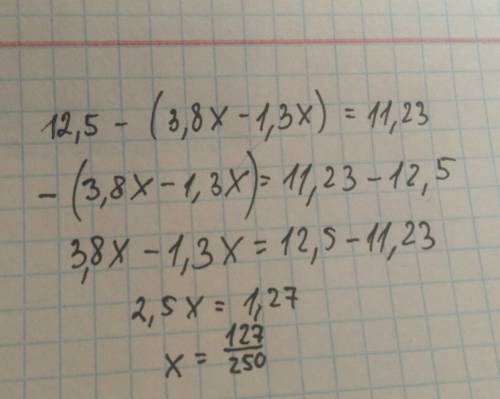 12,5 - (3,8x - 1,3x) = 11,23
- (3,8x - 1,3x) = 11,23 - 12,5
3,8x - 1,3x = 12,5 - 11,23
2,5x = 1,27
x = 127/250